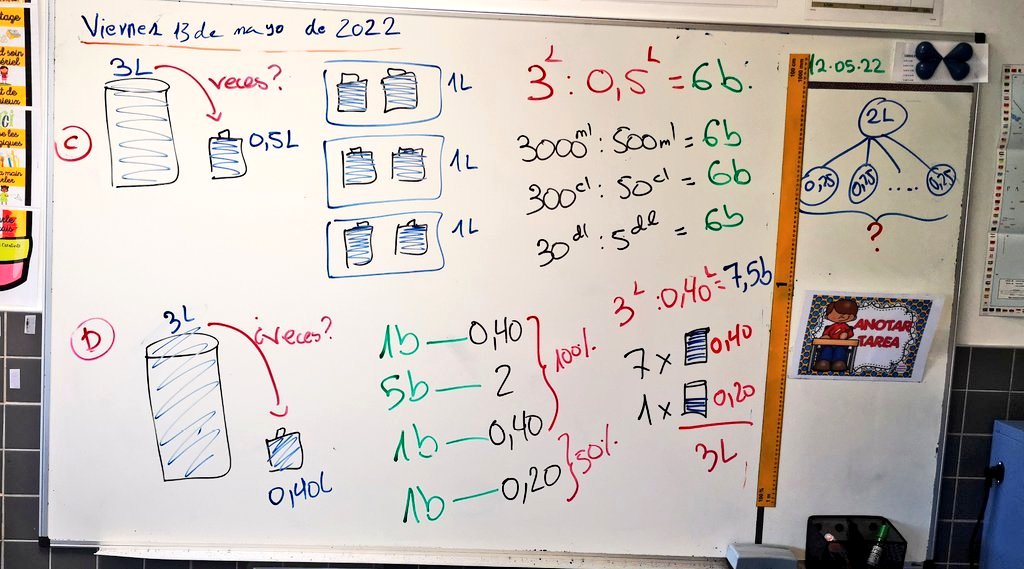 Viernes 13 de mayo de 2022
C
3L
veces?
0,5L
1L
1L
1L
3L : 0,5L = 6b.
3000ml : 500ml = 6b
300cl : 50cl = 6b
30dl : 5dl = 6b
D
3L
¿veces?
0,40L
1b — 0,40
5b — 2
1b — 0,40
100%
1b — 0,20
50%
3L : 0,40L = 7,5b
7 x 0,40
1 x 0,20
3L
12.05.22
2L
0,25 0,25 .... 0,25
?
ANOTAR
TAREA